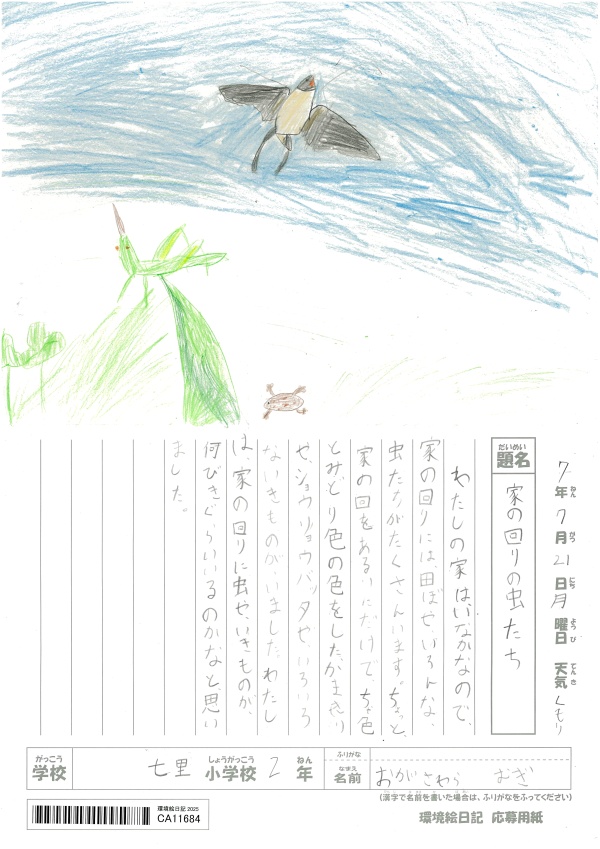 7年7月21日月曜日 天気くもり
ねん がつ にち ようび てんき
だいめい
題名
家の回りの虫たち
わたしの家は、いなかなので、
家の回りには、田ぼや、いろんな、
虫たちがたくさんいます。ちょっと、
家の回をあるいただけで、ちゃ色
とみどり色の色をしたかまきり
や、ショウリョウバッタや、いろいろ
ないきものが、いました。わたし
は、家の回りに虫や、いきものが、
何びきぐらいいるのかなと、思い
ました。
がっこう しょうがっこう ねん
学校 七里 小学校 2 年
ふりがな
なまえ
名前 おがさわら むぎ
(漢字で名前を書いた場合は、ふりがなをふってください)
環境絵日記 2025
CA11684
環境絵日記 応募用紙